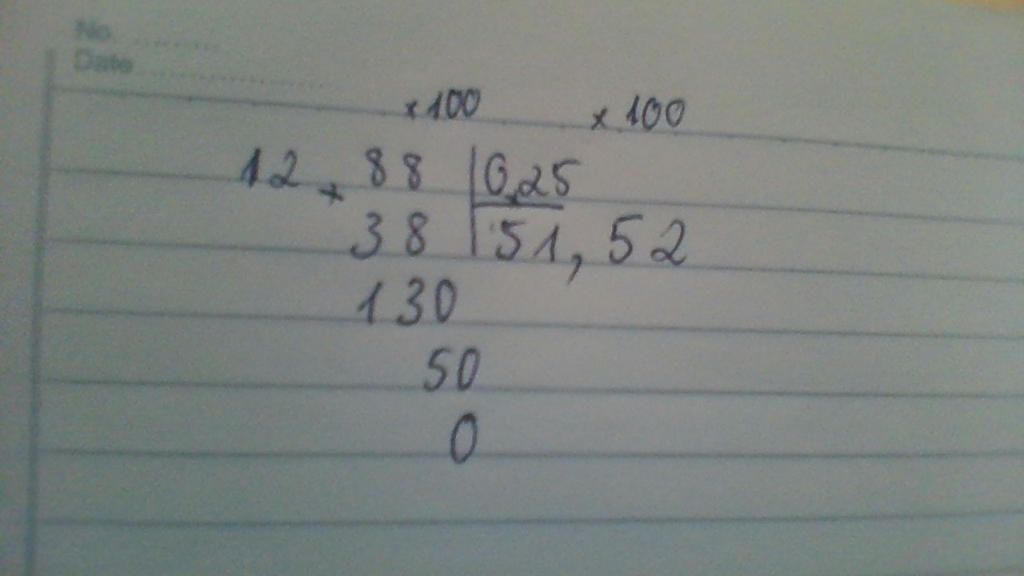 No. ..........
Date ....................
×100 ×100
12,88 0,25
38 51,52
130
50
0